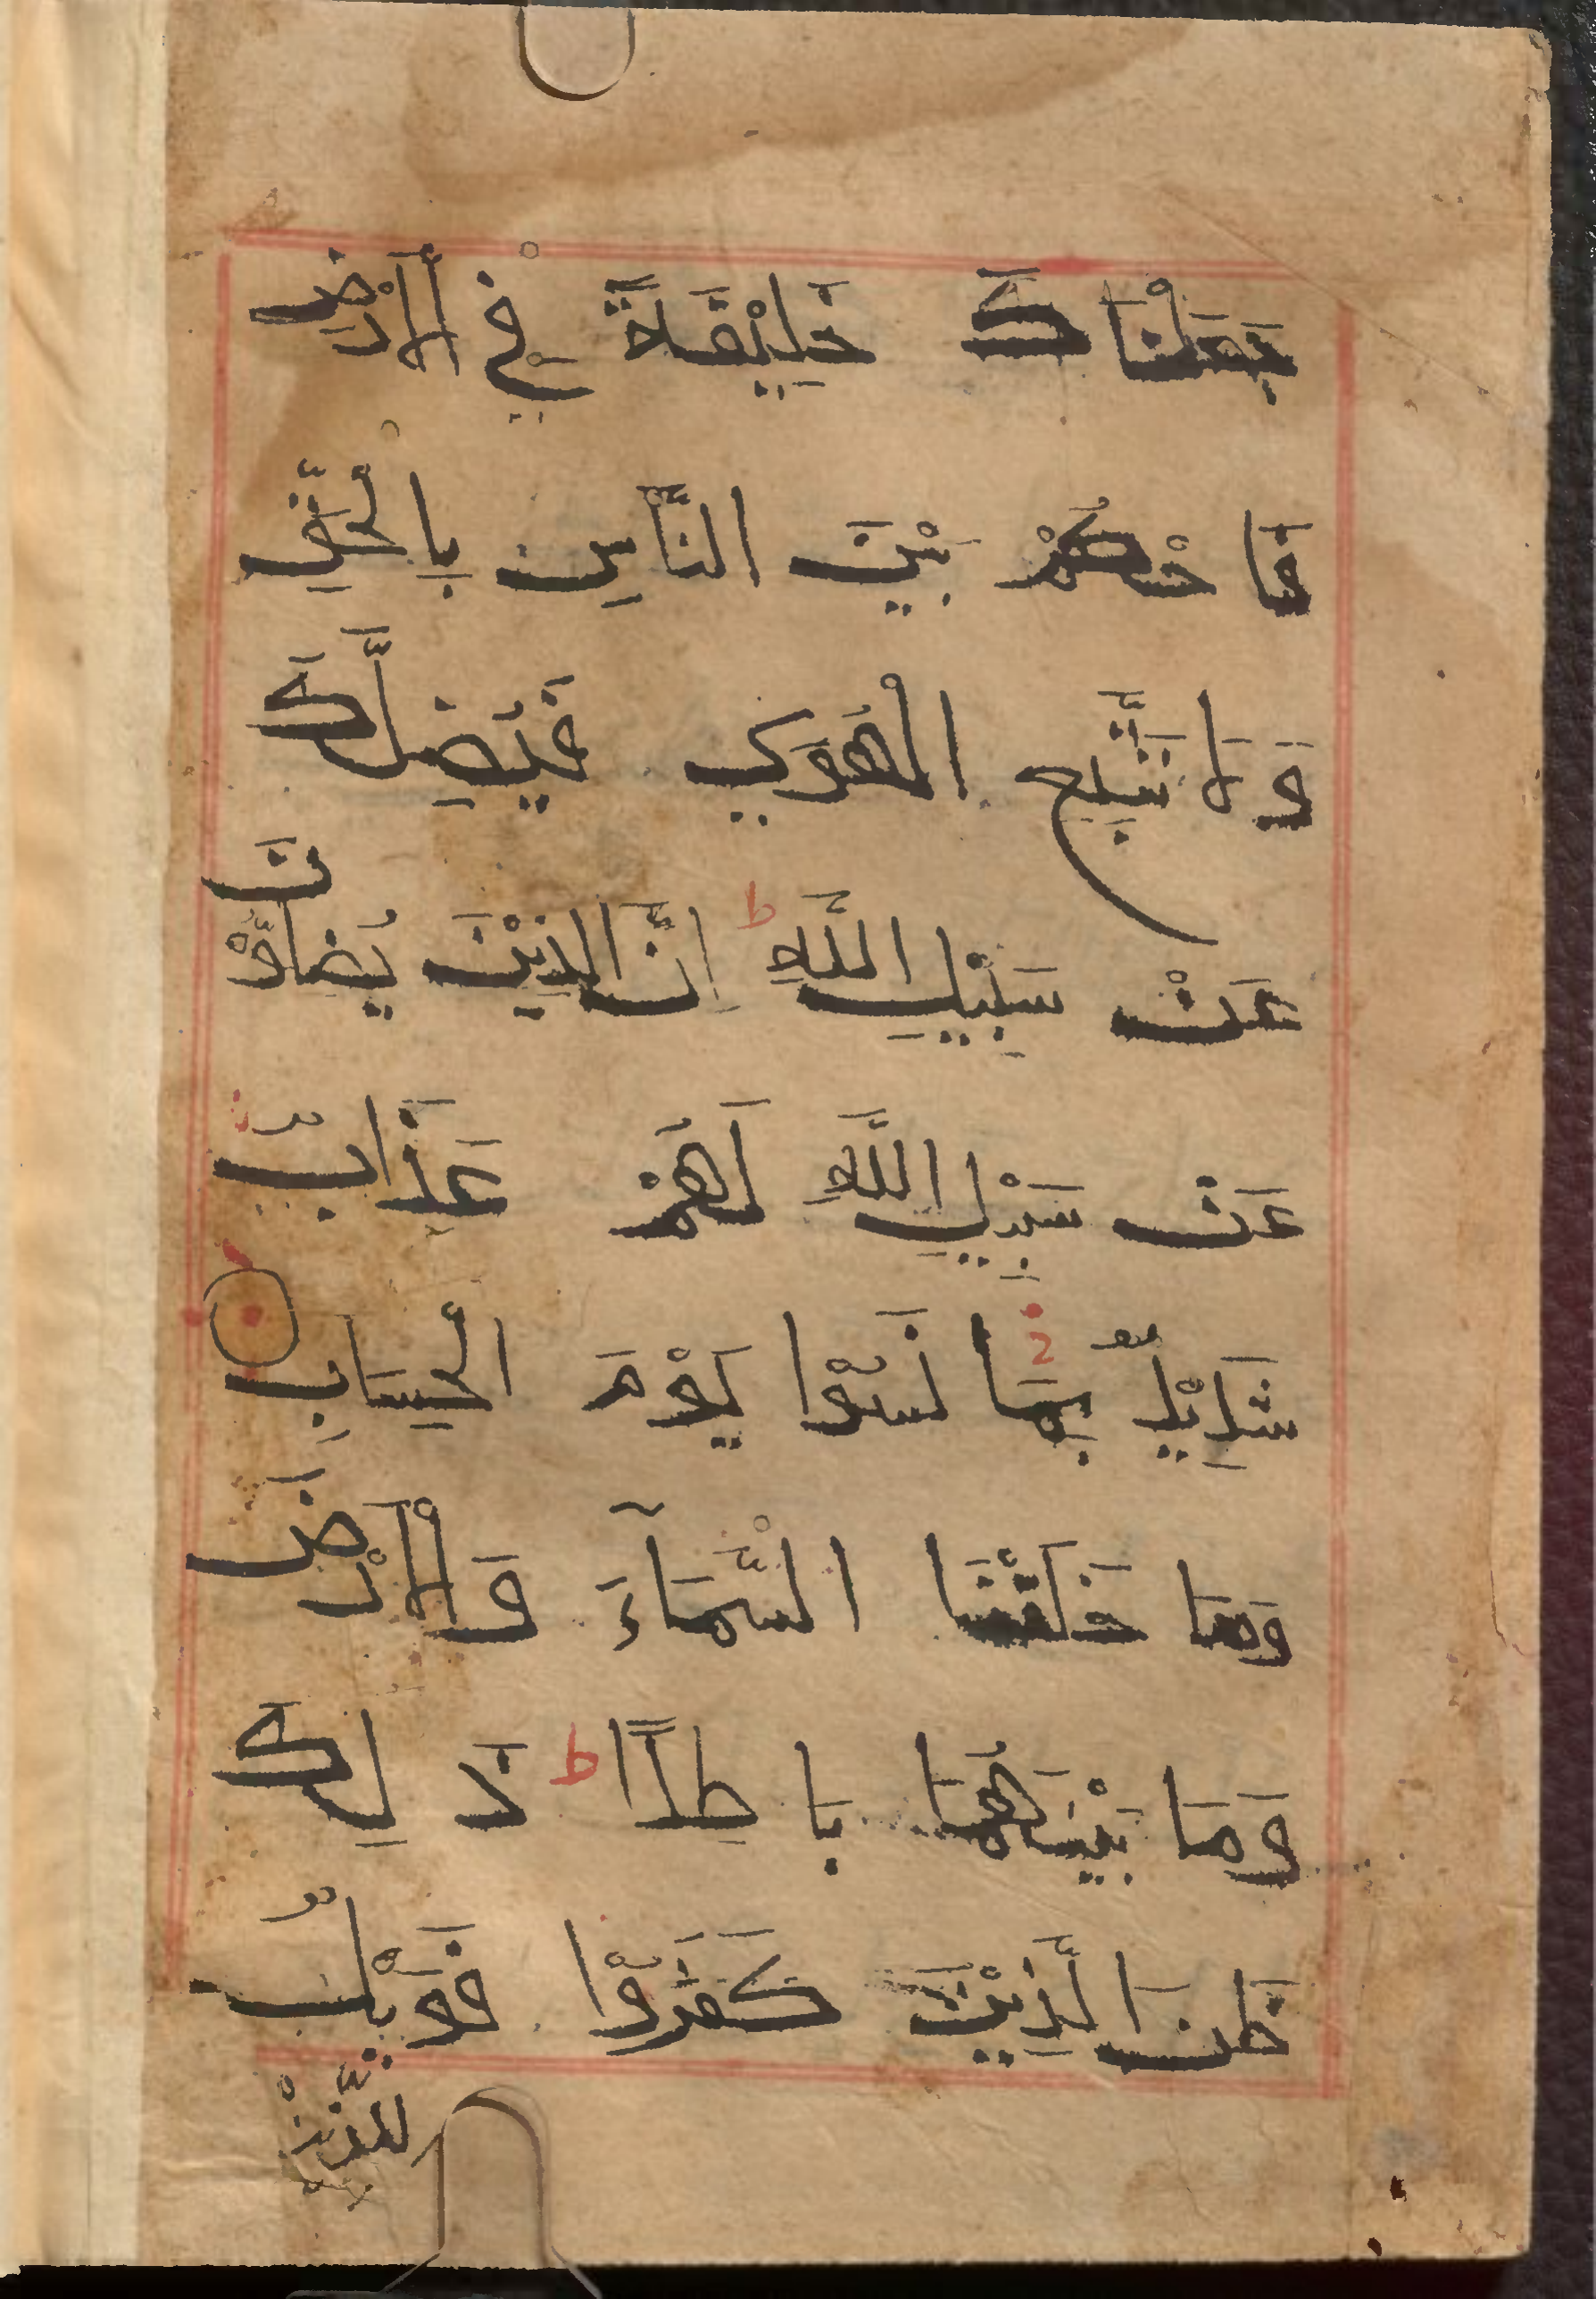 جَعَلْنَاكَ خَلِيْفَةً فِيْ الْاَرْضِ
فَاحْكُمْ بَيْنَ النَّاسِ بِالْحَقِّ
وَلَا تَتَّبِعِ الْهَوَي فَيُضِلَّكَ
عَنْ سَبِيْلِ اللَّهِ ط اِنَّ الذِيْنَ يُضِلُّوْنَ
عَنْ سَبِيْلِ اللَّهِ لَهُمْ عَذَابٌ
شَدِيْدٌ بِمَا نَسُوْا يَوْمَ الْحِسَابِ
وَمَا خَلَقْنَا السَّمَآءَ وَالْاَرْضَ
وَمَا بَيْنَهُمَا بَاطِلًا ط ذَلِكَ
ظَنُ الَّذِيْنَ كَفَرُوْا فَوَيْلٌ
للَّذِيْنَ